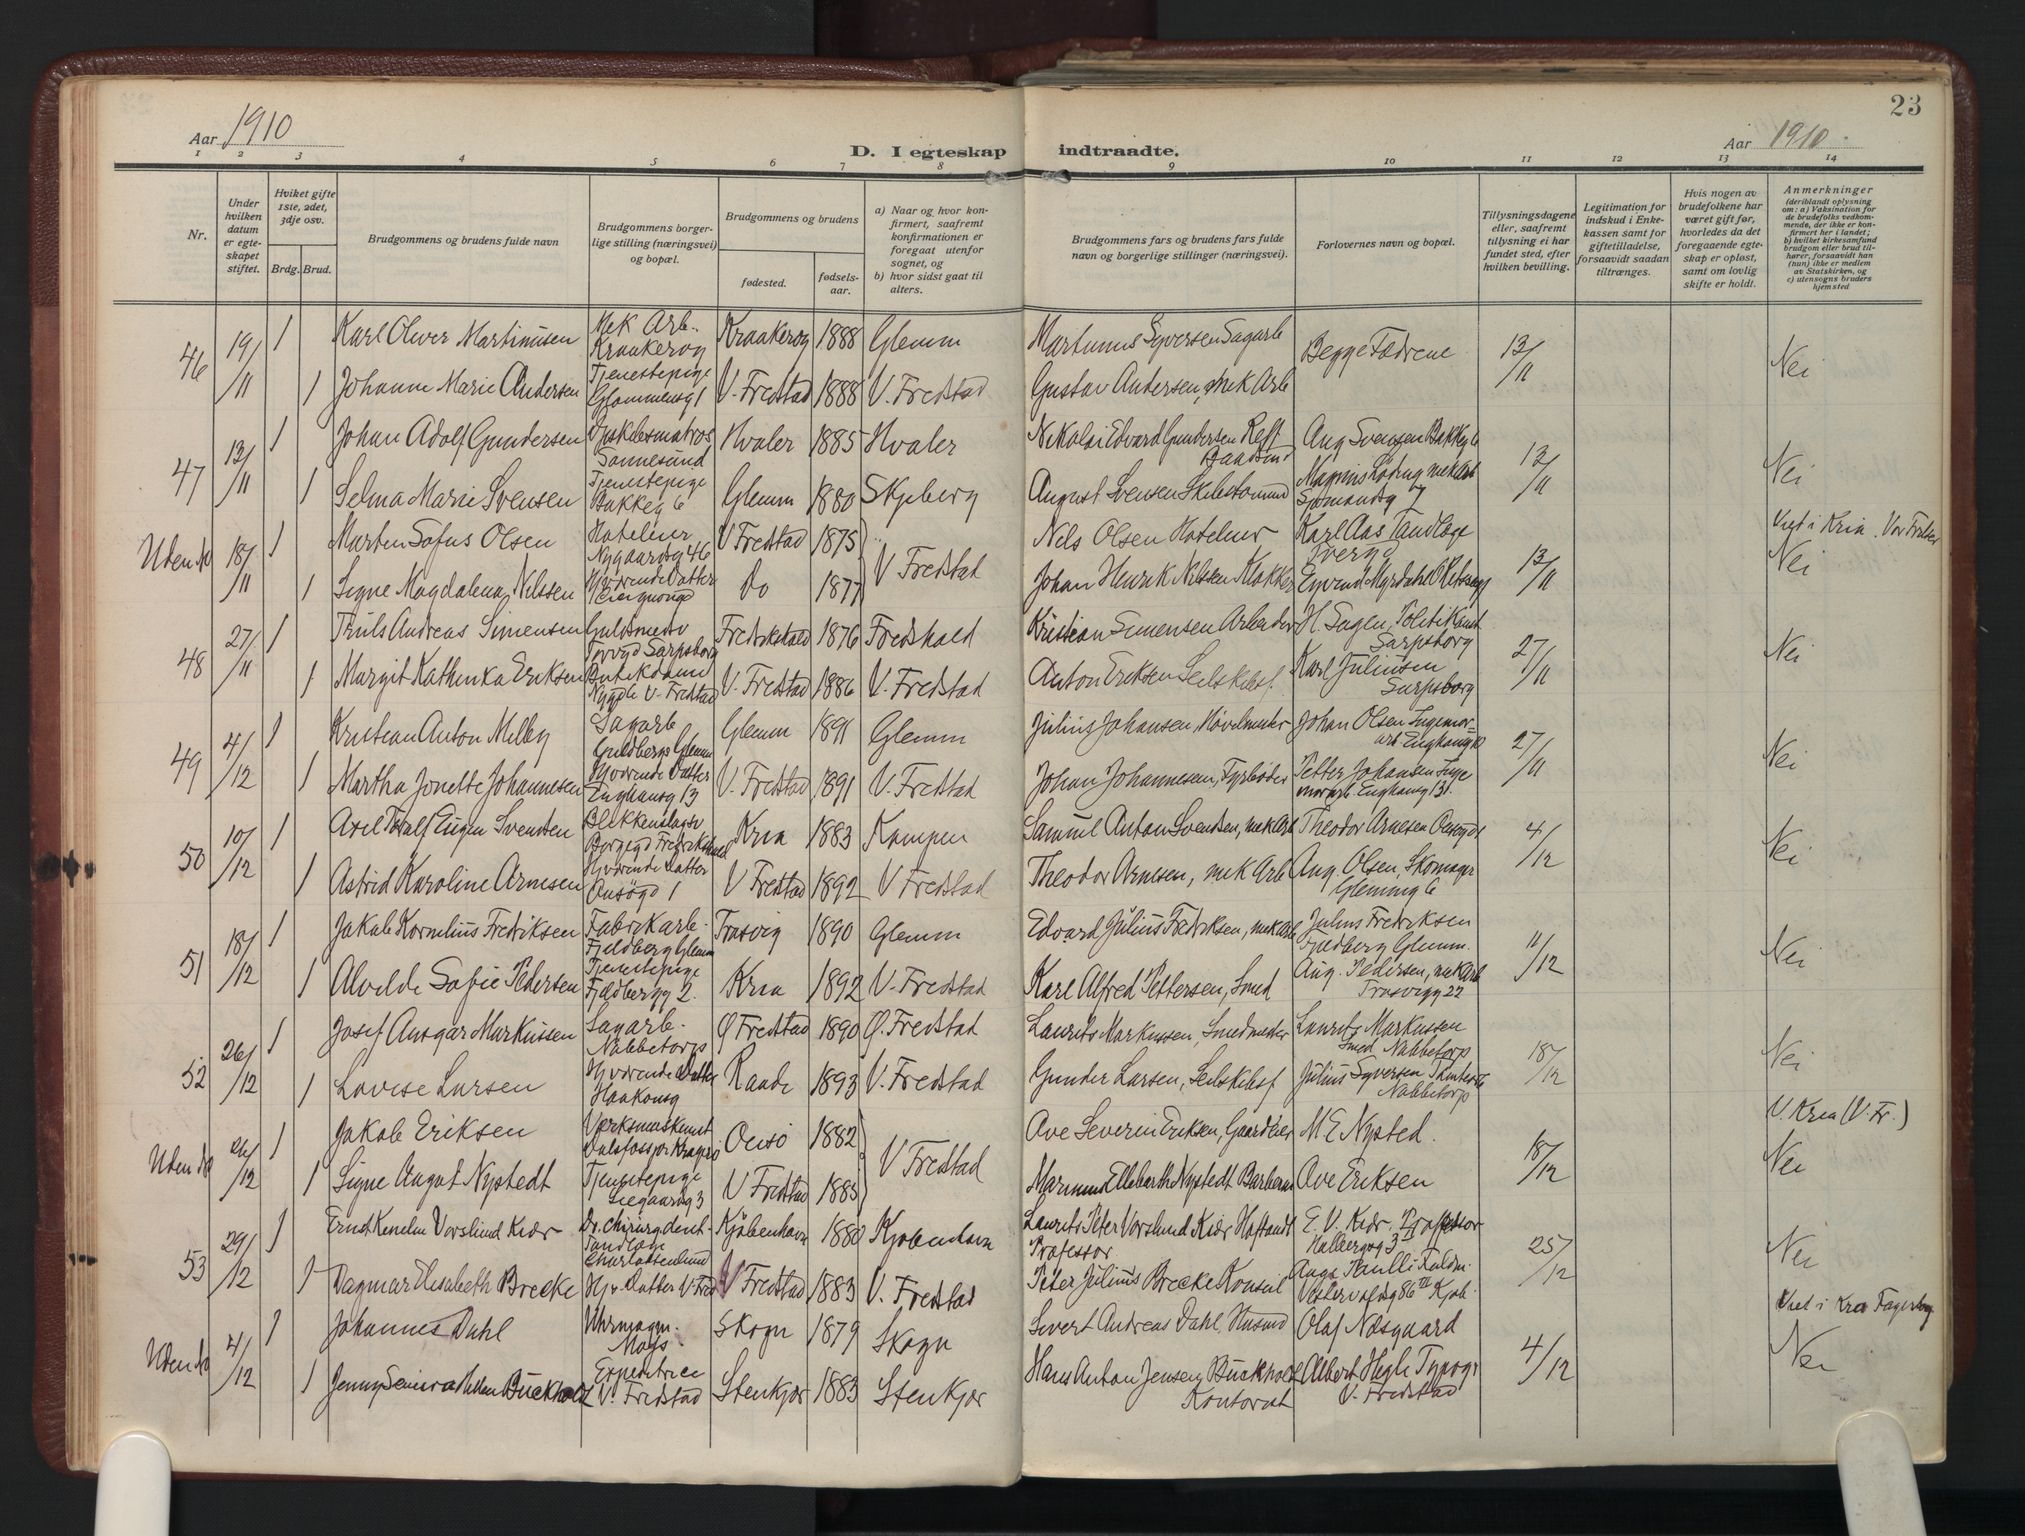 23
Aar 1910
Aar 1910
D. I egteskap indtraadte.
1 2 3 4 5 6 7 8 9 10 11 12 13 14
Nr.
Under hvilken datum er egteskapet stiftet.
Hviket gifte 1ste, 2det, 3dje osv.
Brdg. Brud.
Brudgommens og brudens fulde navn
Brudgommens borgerlige stilling (næringsvei) og bopæl.
Brudgommens og brudens
fødested.
fødsels-aar.
a) Naar og hvor konfirmert, saafremt konfirmationen er foregaat utenfor sognet, og
b) hvor sidst gaat til alters.
Brudgommens fars og brudens fars fulde navn og borgerlige stillinger (næringsvei).
Forlovernes navn og bopæl.
Tillysningsdagene eller, saafremt tillysning ei har fundet sted, efter hvilken bevilling.
Legitimation for indskud i Enkekassen samt for giftetilladelse, forsaavidt saadan tiltrænges.
Hvis nogen av brudefolkene har været gift før, hvorledes da det foregaaende egteskap er opløst, samt om lovlig skifte er holdt.
Anmerkninger
(deriblandt oplysning om: a) Vaksination for de brudefolks vedkommende, der ikke er konfirmert her i landet; b) hvilket kirkesamfund brudgom eller brud tilhører, forsaavidt han (hun) ikke er medlem av Statskirken, og c) utensogns bruders hjemsted
46 19/11 1 Karl Oliver Martinusen Mek Arb. Kraakerøy Kraakerøy 1888 Glemm Martinius Syversen Sagarb Begge Fædrene 13/11 Nei
1 Johanne Marie Andersen Tjenestepige Glommensg 1 V. Fredstad 1888 V. Fredstad Gustav Andersen, Mek Arb
47 13/11 1 Johan Adolf Gundersen Hvaler 1885 Hvaler Nikolai Edvard Gundersen Aug Svensen Bakkeg 6 13/11 Nei
1 Selma Marie Svensen Tjenestepige Bakkeg 6 Glemm 1880 Skjeberg August Svensen mek Arb
Uden No 18/11 1 Martin Sofus Olsen Hoteleier Nygaardsg 46 V Fredstad 1875 V Fredstad Nels Olsen Hoteleier Karl Aas Tandlæge 13/11 Viet i Kria. Vor Frelser Nei
1 Signe Magdalena Nilssen Hjvdrende Datter Do 1877 Johan Henrik Nilsen Klokker
48 27/11 1 Truls Andreas Simensen Guldsmed Torvgd Sarpsborg Fredrikshald 1876 Fredshald Kristian Simensen Arbeider Sarpsborg 27/11 Nei
1 Margit Kathinka Eriksen V. Fredstad V. Fredstad 1886 V. Fredstad Anton Eriksen Seilskibsf. Karl Juliusen Sarpsborg
49 4/12 1 Kristian Anton Melby Sagarb Guldbergs Glemm Glemm 1891 Glemm Julius Johansen, Høvelmester Johan Olsen 27/11 Nei
1 Martha Jonette Johannesen Hjvdrende Datter Enghausg 13 V. Fredstad 1891 V. Fredstad Johan Johannesen, Fyrbøder Petter Johansen Enghausg 13
50 10/12 1 Axel Eugen Svendsen Blikkenslager Kria 1883 Kampen Samuel Anton Svendsen, mek Arb Theodor Arnesen 4/12 Nei
1 Astrid Karoline Arnesen Hjvdrende Datter V Fredstad 1892 V Fredstad Theodor Arnesen, mek Arb Aug. Olsen, Skomagr Glemmg 6
51 18/12 1 Jakob Kornelius Fredriksen Fabrikarb. Fjeldberg Glemm Trosvig 1890 Glemm Edvard Julius Fredriksen, mek Arb Julius Fredriksen Fjeldberg Glemm. 11/12 Nei
1 Alvilde Sofie Pedersen Tjenestepige Fjeldbergg 2. Kria 1892 V. Fredstad Karl Alfred Pettersen, Smed Aug. Pedersen, mek Arb Trosvigg 22
52 26/12 1 Josef Ansgar Markussen Sagarb. Nabbetorp Ø Fredstad 1890 Ø. Fredstad Laurits Markussen, Smedmester Laurits Markussen Smed Nabbetorp 18/12 Nei
1 Lovise Larsen Hjvdrende Datter Haakonsg Raade 1893 V. Fredstad Gunder Larsen, Seilskibsf Julius Syversen Nabbetorp
Uden No 26/12 1 Jakob Eriksen Onsö 1882 V Fredstad Ave Severin Eriksen, Gaardeier M E Nysted. 18/12 V. Kria (V. Fr.) Nei
1 Signe August Nystedt Tjenestepige V Fredstad 1885 Nystedt Barberer Ave Eriksen
53 29/12 1 Ernst Kenelm Vorslund Kiær Dr. chirurg dent. Tandlæge Charlottenlund Kjøbenhavn 1880 Kjøbenhavn Laurits Peter Vorslund Kiær Professor E. V. Kiær. Professor 25/12 Nei
1 Dagmar Elisabeth Brecke Hjv Datter V Fred V Fredstad 1883 V. Fredstad Peter Julius Brecke Konsul Vestervoldg 86 III Kjøb.
Uden No 4/12 1 Johannes Dahl Uhrmagr. Moss Skogn 1879 Skogn Sivert Andreas Dahl, Husmd Olaf Næsgaard 4/12 Viet i Kria Fagerborg Nei
1 Jenny Buckholt Expeditrice V. Fredstad Stenkjær 1883 Stenkjær Hans Anton Jensen Buckholt Kontorist Albert Høgh Typogr V. Fredstad